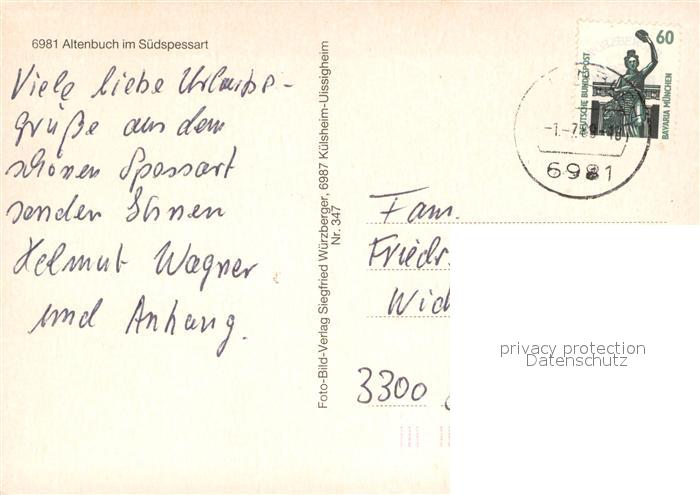 6981 Altenbuch im Südspessart
Viele liebe Urlaubs-
grüße aus dem
schönen Spessart
senden Ihnen
Helmut Wagner
und Anhang.
Foto-Bild-Verlag Siegfried Würzberger, 6987 Külsheim-Uissigheim
Nr. 347
60
DEUTSCHE BUNDESPOST
BAVARIA MÜNCHEN
6981
Fam.
Friedr.
Wid
3300
privacy protection
Datenschutz